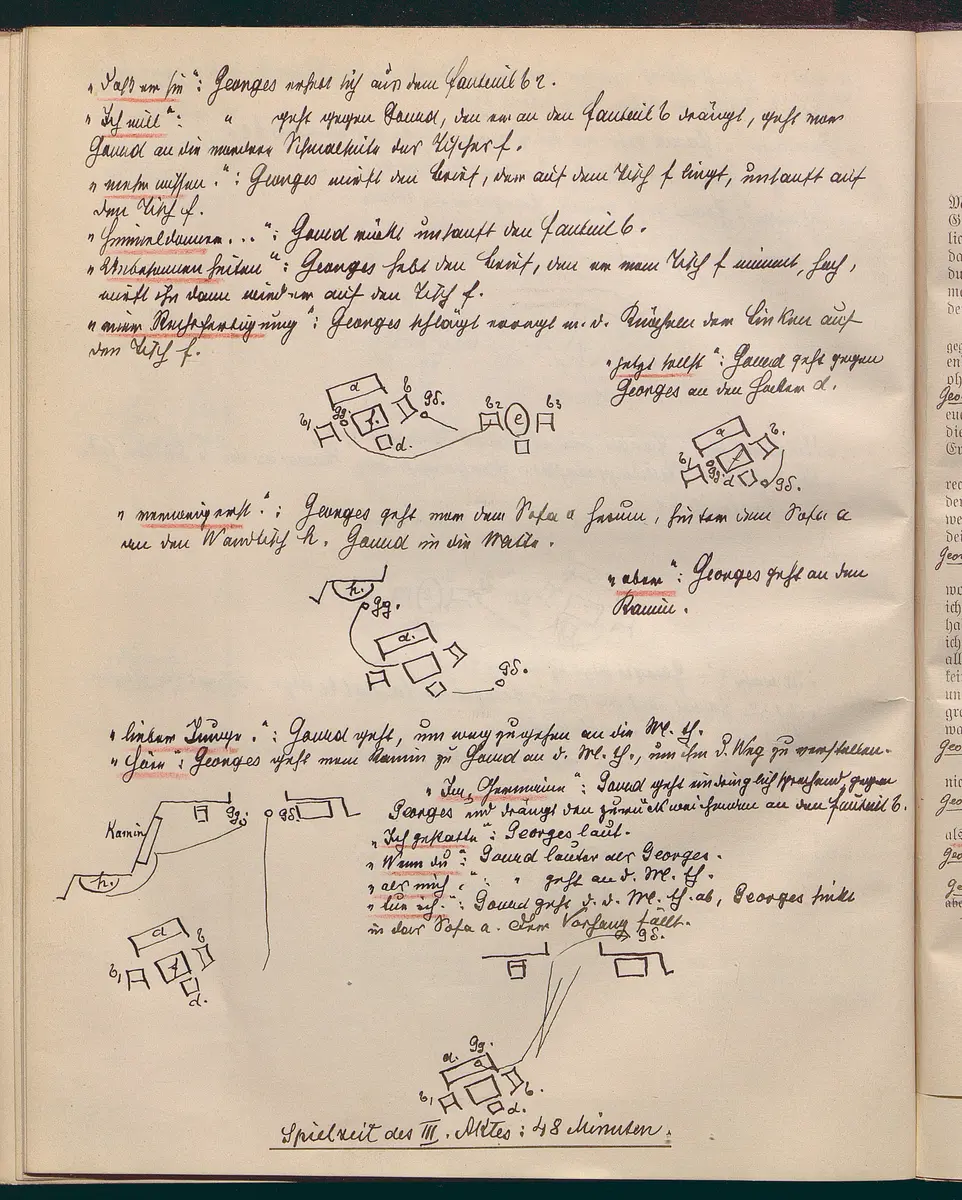 „Daß er sie“: Georges erhebt sich aus dem Fauteuil b 2.
„Ich will“: „ geht gegen Gourd, den er an den Fauteuil b drängt, geht vor
Gourd an die vordere Schmalseite des Tisches f.
„mehr wissen.“: Georges wirft den Brief, der auf dem Tisch f liegt, unsanft auf
den Tisch f.
„Himmeldonner...“: Gourd rückt unsanft den Fauteuil b.
„Unbesonnenheiten“: Georges hebt den Brief, den er vom Tisch f nimmt, hoch,
wirft ihn dann wieder auf den Tisch f.
Rechtfertigung“: Georges schlägt erregt m. d. Knöcheln der Linken auf
den Tisch f.
„Jetzt sollst“: Gourd geht gegen
Georges an den Hocker d.
a b gd.
b1 gg. f. d. b2 e b3
a b.
b1 gg. f d gd.
Georges geht vor dem Sofa a herum, hinter dem Sofa a
an den Wandtisch h. Gourd in die Mitte.
„aber“: Georges geht an den
Kamin.
h. gg.
a. gd.
„lieber Junge.“: Gourd geht, um wegzugehen an die M. th.
„Höre“: Georges geht vom Kamin zu Gourd an d. M. th., um ihm d. Weg zu verstellen.
„Ja, Germaine“: Gourd geht eindringlich sprechend gegen
Georges und drängt den zurückweichenden an den Fauteuil b.
Kamin gg. gd.
„Ich gestatte“: Georges laut.
„Wenn du“: Gourd lauter als Georges.
„als mich“: „ geht an d. M. th.
„tue ich.“: Gourd geht d. d. M. th. ab, Georges sinkt
in das Sofa a. Der Vorhang fällt.
h.
gd.
a b
b1 f d.
a. gg.
b1 b.
d.
Spielzeit des III. Aktes: 48 Minuten.